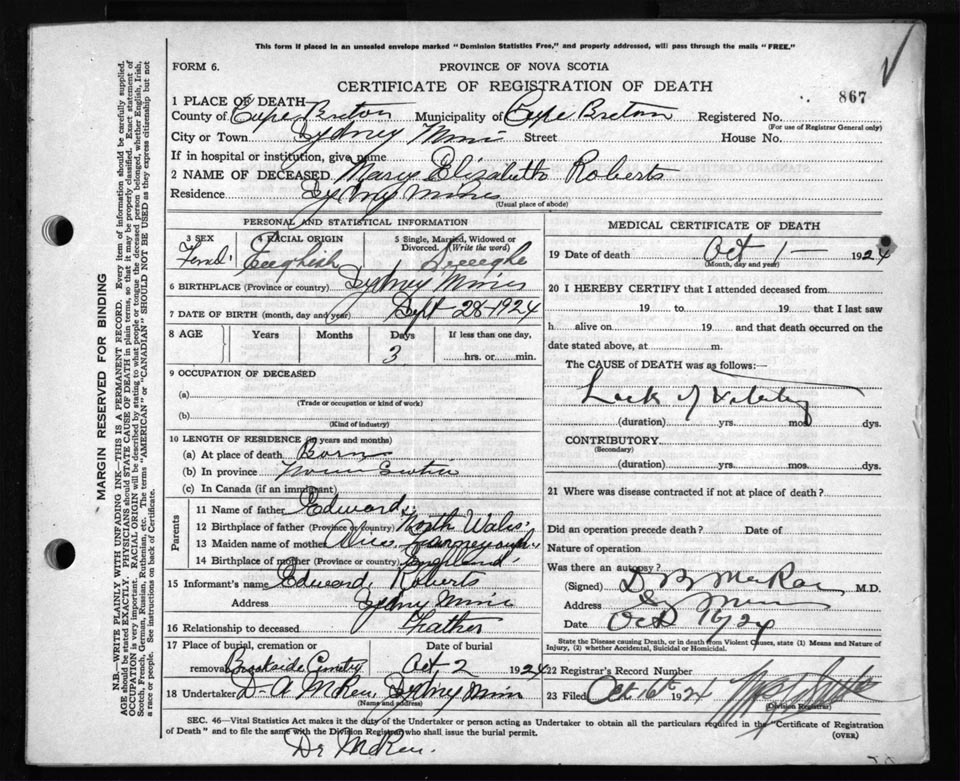 This form if placed in an unsealed envelope marked "Dominion Statistics Free," and properly addressed, will pass through the mails "FREE."
FORM 6.
PROVINCE OF NOVA SCOTIA
CERTIFICATE OF REGISTRATION OF DEATH
867
1 PLACE OF DEATH
County of Cape Breton Municipality of Cape Breton Registered No.
(For use of Registrar General only)
City or Town Sydney Mines Street House No.
If in hospital or institution, give name
2 NAME OF DECEASED Mary Elizabeth Roberts
Residence Sydney Mines
(Usual place of abode)
PERSONAL AND STATISTICAL INFORMATION
3 SEX 4 RACIAL ORIGIN 5 Single, Married, Widowed or Divorced. (Write the word)
English Single
6 BIRTHPLACE (Province or country) Sydney Mines
7 DATE OF BIRTH (month, day and year) Sept 28-1924
8 AGE Years Months Days If less than one day,
3 hrs. or min.
9 OCCUPATION OF DECEASED
(a)
(Trade or occupation or kind of work)
(b)
(Kind of industry)
10 LENGTH OF RESIDENCE (in years and months)
(a) At place of death Born
(b) In province Nova Scotia
(c) In Canada (if an immigrant)
Parents
11 Name of father Edward
12 Birthplace of father (Province or country) North Wales
13 Maiden name of mother
14 Birthplace of mother (Province or country) England
15 Informant's name Edward Roberts
Address Sydney Mines
16 Relationship to deceased Father
17 Place of burial, cremation or removal Brookside Cemetery Date of burial Oct 2 1924
18 Undertaker D A McRae, Sydney Mines
(Name and address)
MEDICAL CERTIFICATE OF DEATH
19 Date of death Oct 1 1924
(Month, day and year)
20 I HEREBY CERTIFY that I attended deceased from
19 to 19 that I last saw
h alive on 19 and that death occurred on the
date stated above, at m.
The CAUSE OF DEATH was as follows:—
Lack of Vitality
(duration) yrs. mos. dys.
CONTRIBUTORY
(Secondary)
(duration) yrs. mos. dys.
21 Where was disease contracted if not at place of death?
Did an operation precede death? Date of
Nature of operation
Was there an autopsy?
(Signed) D B McRae M.D.
Address Sy Mines
Date Oct 1 1924
State the Disease causing Death, or in death from Violent Causes, state (1) Means and Nature of Injury, (2) whether Accidental, Suicidal or Homicidal.
22 Registrar's Record Number
23 Filed Oct 16th 1924
(Division Registrar)
SEC. 46—Vital Statistics Act makes it the duty of the Undertaker or person acting as Undertaker to obtain all the particulars required in the "Certificate of Registration
of Death" and to file the same with the Division Registrar who shall issue the burial permit.
(OVER)
Dr McRae.
MARGIN RESERVED FOR BINDING
N.B.—WRITE PLAINLY WITH UNFADING INK—THIS IS A PERMANENT RECORD. Every item of information should be carefully supplied.
AGE should be stated EXACTLY. PHYSICIANS should STATE CAUSE OF DEATH in plain terms, so that it may be properly classified. Exact statement of
OCCUPATION is very important. RACIAL ORIGIN will be described by stating to what people or tongue the deceased person belonged, whether English, Irish,
Scotch, French, German, Russian, Ruthenian, etc. The terms "AMERICAN" or "CANADIAN" SHOULD NOT BE USED as they express citizenship but not
a race or people. See instructions on back of Certificate.